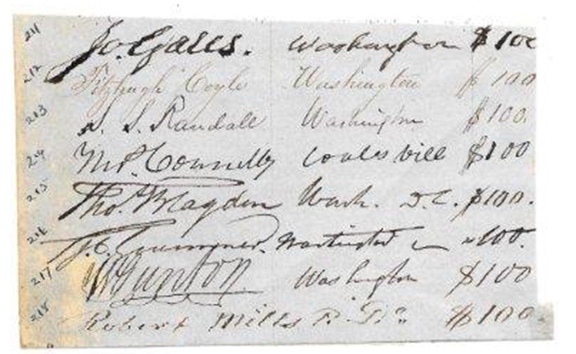 211 Jo. Gales. Washington $100
212 Fitzhugh Coyle Washington $100
213 S. S. Randall Washington $100.
214 Connelly Coalesvill $100
215 Tho. Blagden Wash. D.C. $100.
216 Washington 100.
217 Washington $100
218 Robert Mills P. Do $100.